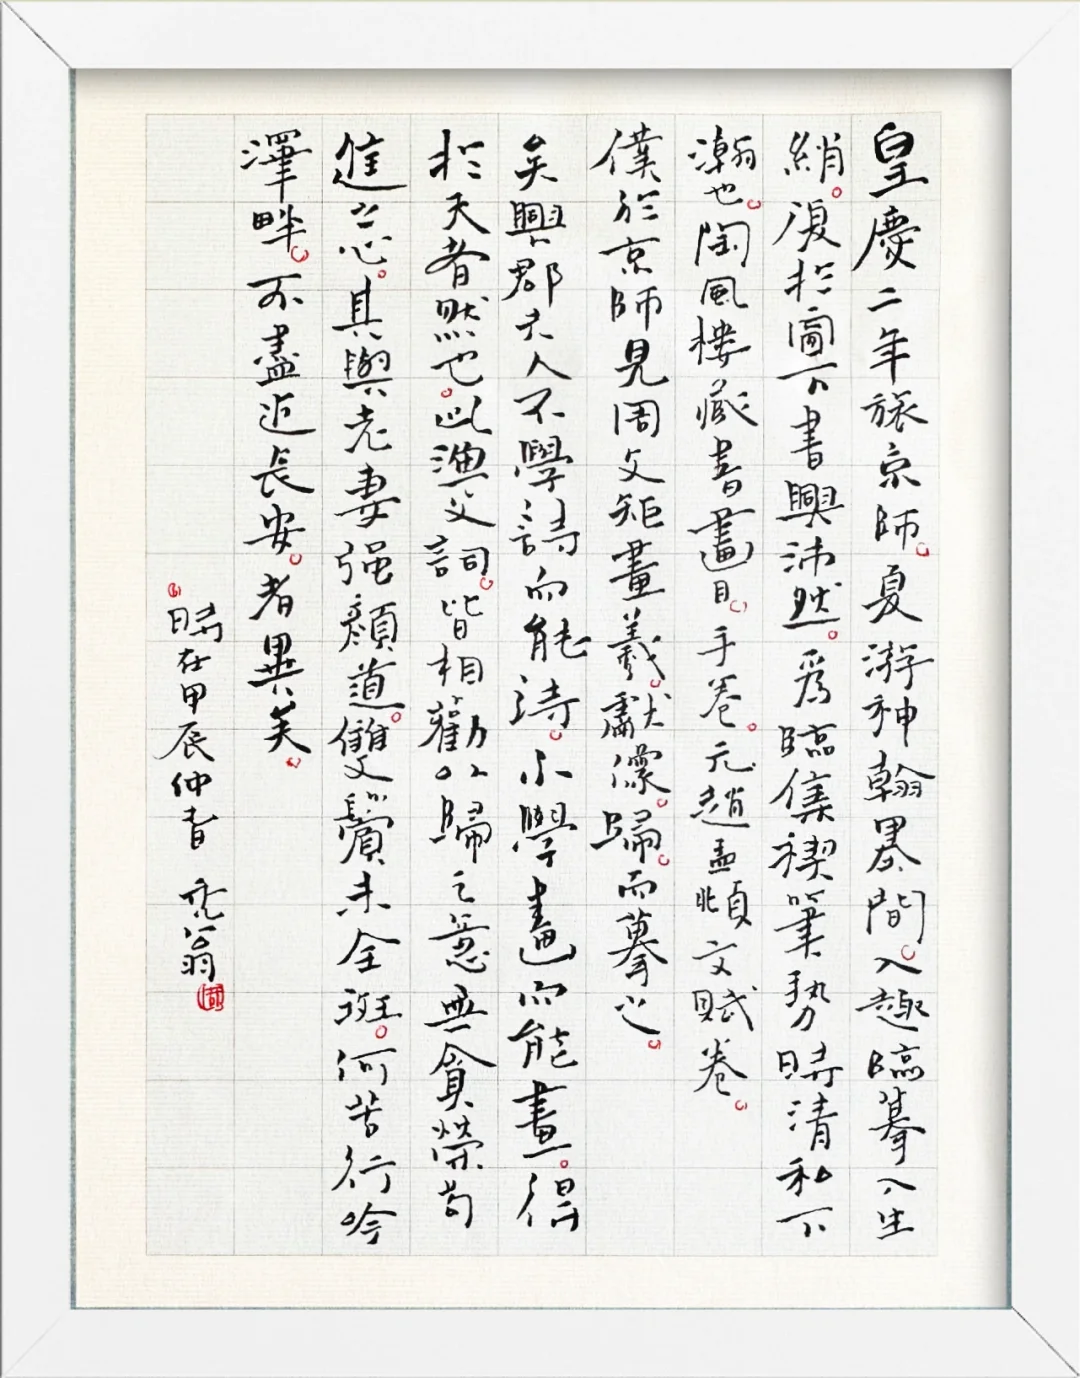 皇慶二年旅京師。夏游神翰墨間。入趣臨摹入生
綃。復於圖下書興沛然。爲臨集禊筆勢時清和下
瀚也。陶風樓藏書畫目。手卷。元趙孟頫文賦卷。
僕於京師見周文矩畫羲獻像。歸。而摹之。
吴興郡夫人不學詩而能詩。不學畫而能畫。得
於天者然也。此漁父詞。皆相勸以歸之意無貪榮苟
進之心。其與老妻强顏道。雙鬢未全斑。何苦行吟
澤畔。不盡近長安。者異矣。
時在甲辰仲春 翁